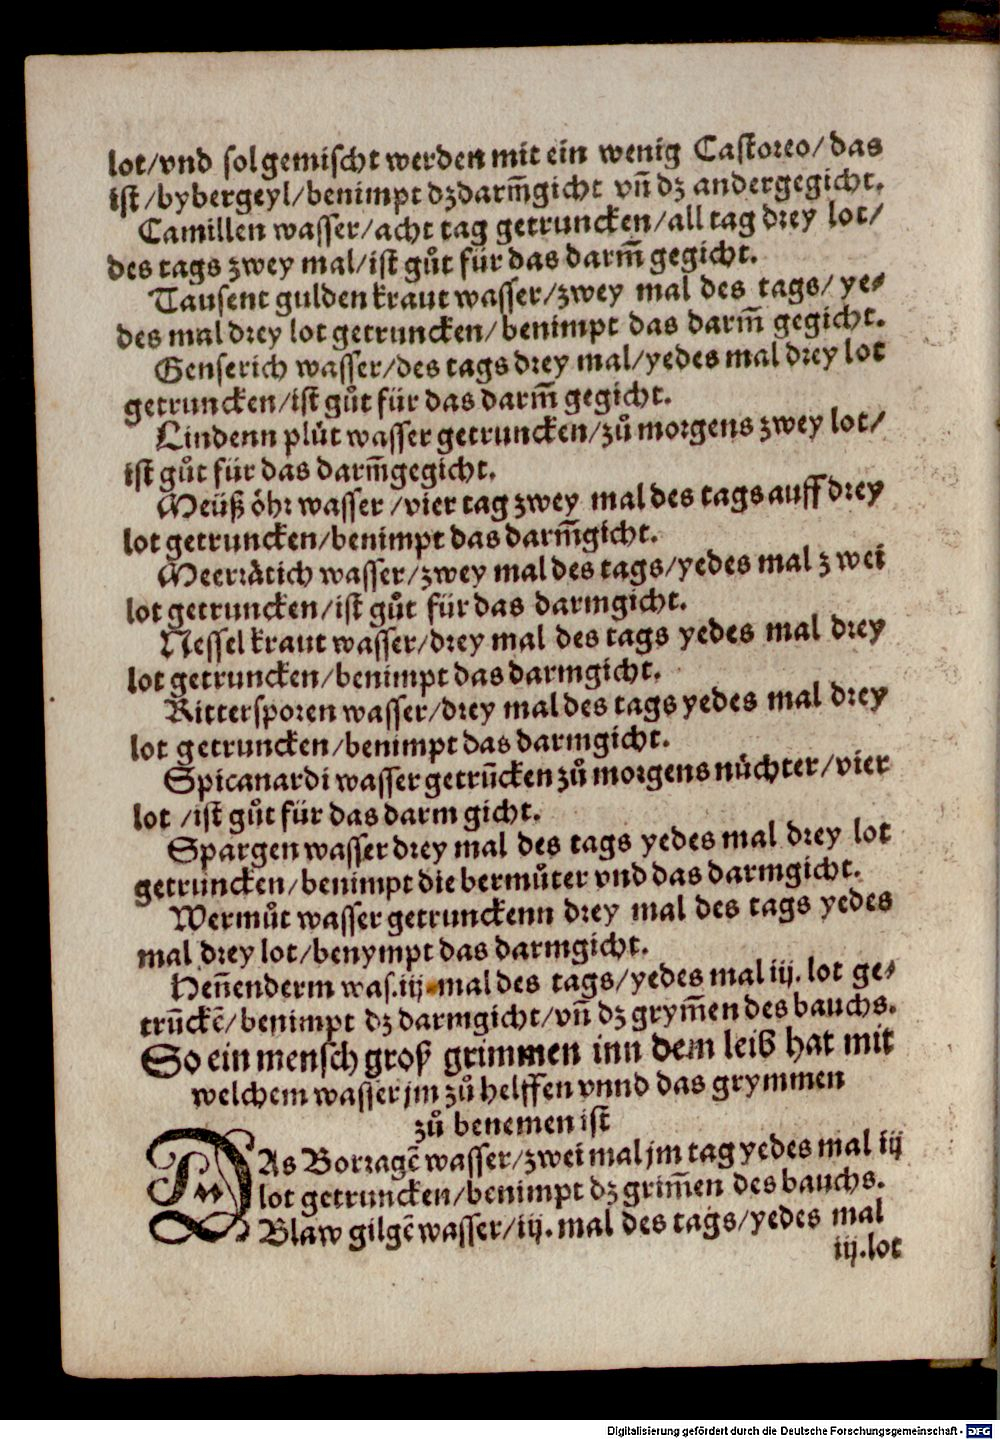 lot/vnd sol gemischt werden mit ein wenig Castoreo/das
ist/bybergeyl/benimpt dz darm̄gicht vn̄ dz andergegicht.
Camillen wasser/acht tag getruncken/all tag drey lot/
des tags zwey mal/ist gůt für das darm̄ gegicht.
Tausent gulden kraut wasser/zwey mal des tags/ye⸗
des mal drey lot getruncken/benimpt das darm̄ gegicht.
Genserich wasser/des tags drey mal/yedes mal drey lot
getruncken/ist gůt für das darm̄ gegicht.
Lindenn plůt wasser getruncken/zů morgens zwey lot/
ist gůt für das darm̄gegicht.
Meüß öhr wasser/vier tag zwey mal des tags auff drey
lot getruncken/benimpt das darm̄gicht.
Meerrätich wasser/zwey mal des tags/yedes mal zwei
lot getruncken/ist gůt für das darmgicht.
Nessel kraut wasser/drey mal des tags yedes mal drey
lot getruncken/benimpt das darmgicht.
Rittersporen wasser/drey mal des tags yedes mal drey
lot getruncken/benimpt das darmgicht.
Spicanardi wasser getrūcken zů morgens nüchter/vier
lot/ist gůt für das darm gicht.
Spargen wasser drey mal des tags yedes mal drey lot
getruncken/benimpt die bermůter vnd das darmgicht.
Wermůt wasser getrunckenn drey mal des tags yedes
mal drey lot/benympt das darmgicht.
Hen̄enderm was.iij.mal des tags/yedes mal iij. lot ge⸗
trūckē/benimpt dz darmgicht/vn̄ dz grym̄en des bauchs.
So ein mensch groß grimmen inn dem leib hat mit
welchem wasser jm zů helffen vnnd das grymmen
zů benemen ist
DAs Borragē wasser/zwei mal jm tag yedes mal iij
lot getruncken/benimpt dz grim̄en des bauchs.
Blaw gilgē wasser/iij. mal des tags/yedes mal
iij.lot
Digitalisierung gefördert durch die Deutsche Forschungsgemeinschaft - DFG